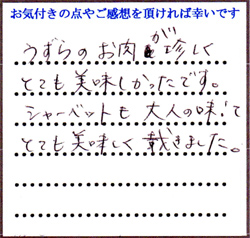 お気付きの点やご感想を頂ければ幸いです
うずらのお肉が珍しく
とても美味しかったです。
シャーベットも大人の味で
とても美味しく戴きました。